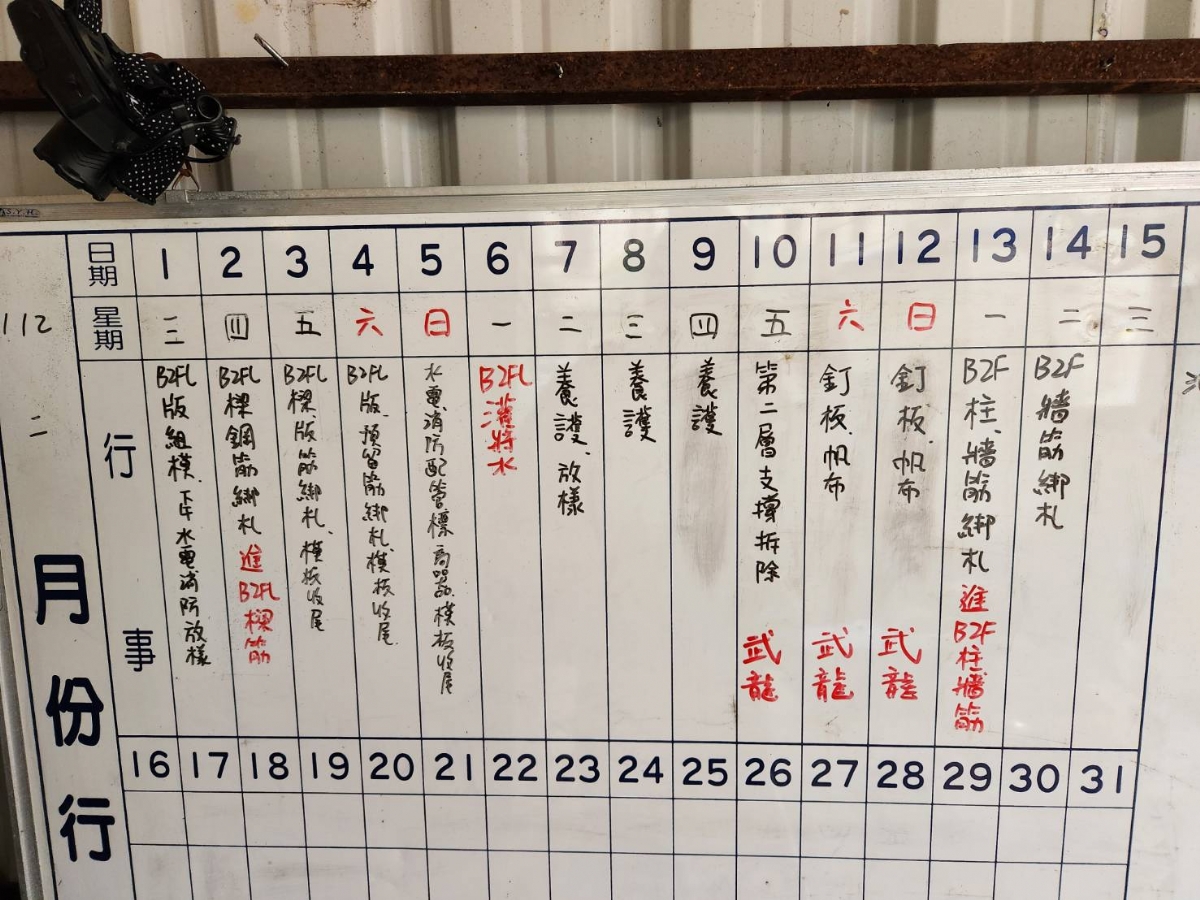 日期 1 2 3 4 5 6 7 8 9 10 11 12 13 14 15
112
星期 三 四 五 六 日 一 二 三 四 五 六 日 一 二 三
二
月份行
行事
B2FL版組模、下午水電消防放樣
B2FL樑鋼筋綁札 進B2FL樑筋
B2FL樑、版筋綁札、模板收尾
B2FL版、預留筋綁札、模板收尾
水電、消防配管標高器模板收尾
B2FL灌將水
養護、放樣
養護
養護
第二層支撐拆除 武龍
釘板、帆布 武龍
釘板、帆布 武龍
B2F柱、牆筋綁札 進B2F柱牆筋
B2F牆筋綁札
16 17 18 19 20 21 22 23 24 25 26 27 28 29 30 31